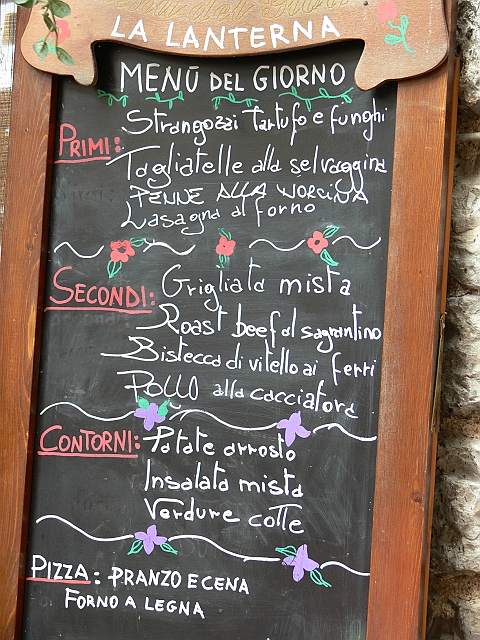 LA LANTERNA
MENÙ DEL GIORNO
PRIMI: Strangozzi tartufo e funghi
Tagliatelle alla selvaggina
PENNE ALLA NORCINA
Lasagna al forno
SECONDI: Grigliata mista
Roast beef al sagrantino
Bistecca di vitello ai ferri
Pollo alla cacciatora
CONTORNI: Patate arrosto
Insalata mista
Verdure cotte
PIZZA: PRANZO E CENA
FORNO A LEGNA